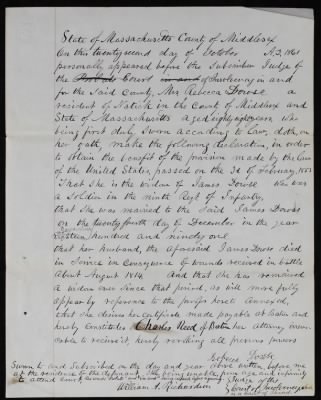 State of Massachusetts County of Middlesex
On this twenty second day of October A.D. 1861
personally appeared before the subscriber Judge of
the Probate Court in and of Insolvency in and
for the said County, Mrs Rebecca Dowse a
resident of Natick in the County of Middlesex and
State of Massachusetts aged eighty eight years who
being first duly sworn according to Law, doth, on
her oath, make the following declaration, in order
to obtain the benefit of the provision made by the Law
of the United States, passed on the 3d of February, 1853
That she is the widow of James Dowse who was
a Soldier in the ninth Regt of Infantry,
that she was married to the said James Dowse
on the twenty fourth day of December in the year
hundred and ninety one
that her husband, the aforesaid James Dowse died
in Service in consequence of wounds received in battle
about August 1814 And that she has remained
a widow ever since that period, as will more fully
appear by reference to the proofs hereto annexed,
that she desires her certificate made payable at Boston and
hereby constitutes Charles Reed of Boston her attorney
to receive it, hereby revoking all previous powers
Sworn to and Subscribed on the day and year above written before me
at the residence of the She being unable, from age and infirmity
to attend Court,
William A. Richardson
Judge of the
Court of Insolvency